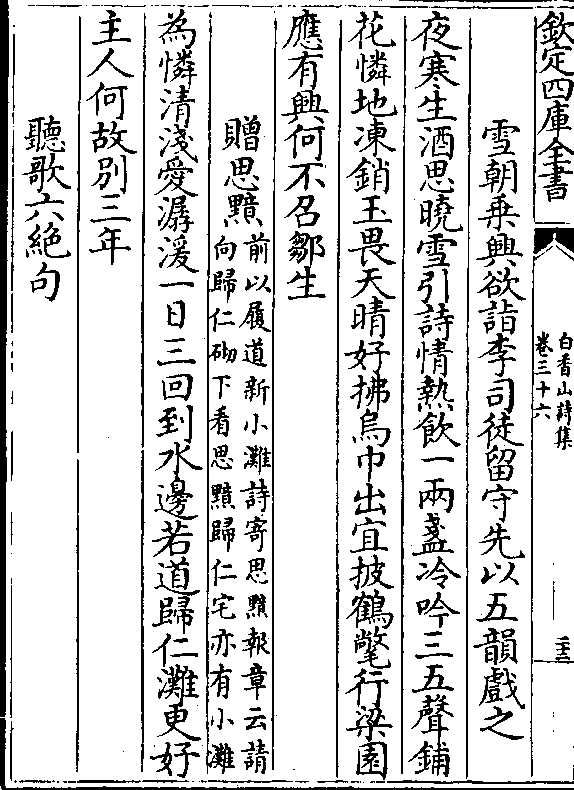 欽定四庫全書
白香山詩集
卷三十六
二十三
雪朝乗興欲詣李司徒留守先以五韻戲之
夜寒生酒思曉雪引詩情熱飲一兩盞冷吟三五聲鋪
花憐地凍銷玉畏天晴好拂烏巾出宜披鶴氅行梁園
應有興何不召鄒生
贈思黯
前以履道新小灘詩寄思黯報章云請
向歸仁砌下看思黯歸仁宅亦有小灘
為憐清淺愛潺湲一日三回到水邊若道歸仁灘更好
主人何故别三年
聽歌六絶句